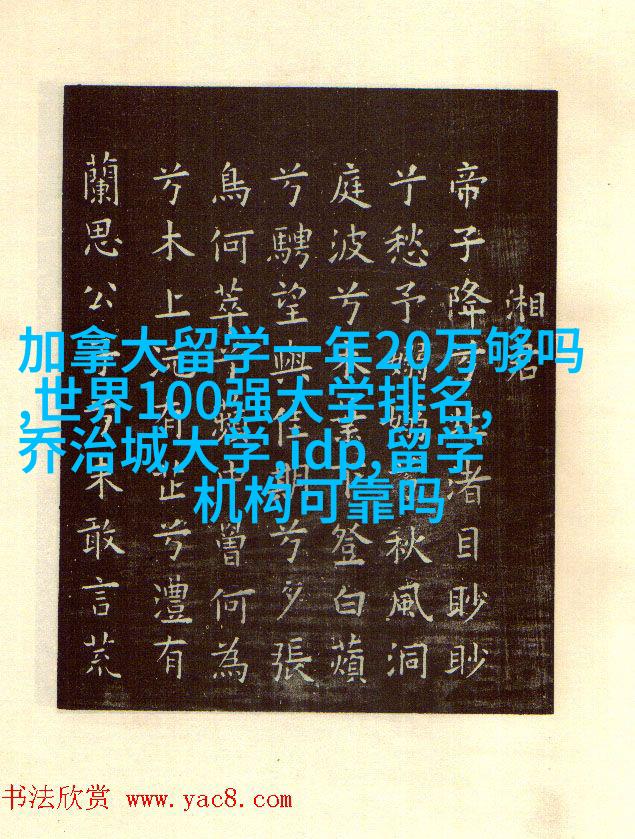 加拿大留学一年20万够吗
,世界100强大学排名,
乔治城大学,idp,留学
机构可靠吗
湘君
帝子降兮北渚目眇眇
兮愁予嫋嫋兮秋風洞
庭波兮木葉下登白蘋
兮騁望與佳期兮夕張
鳥何萃兮中曾何為
兮木上沅有芷兮澧有
蘭思公子兮未敢言荒
书法欣赏 www.yac8.com